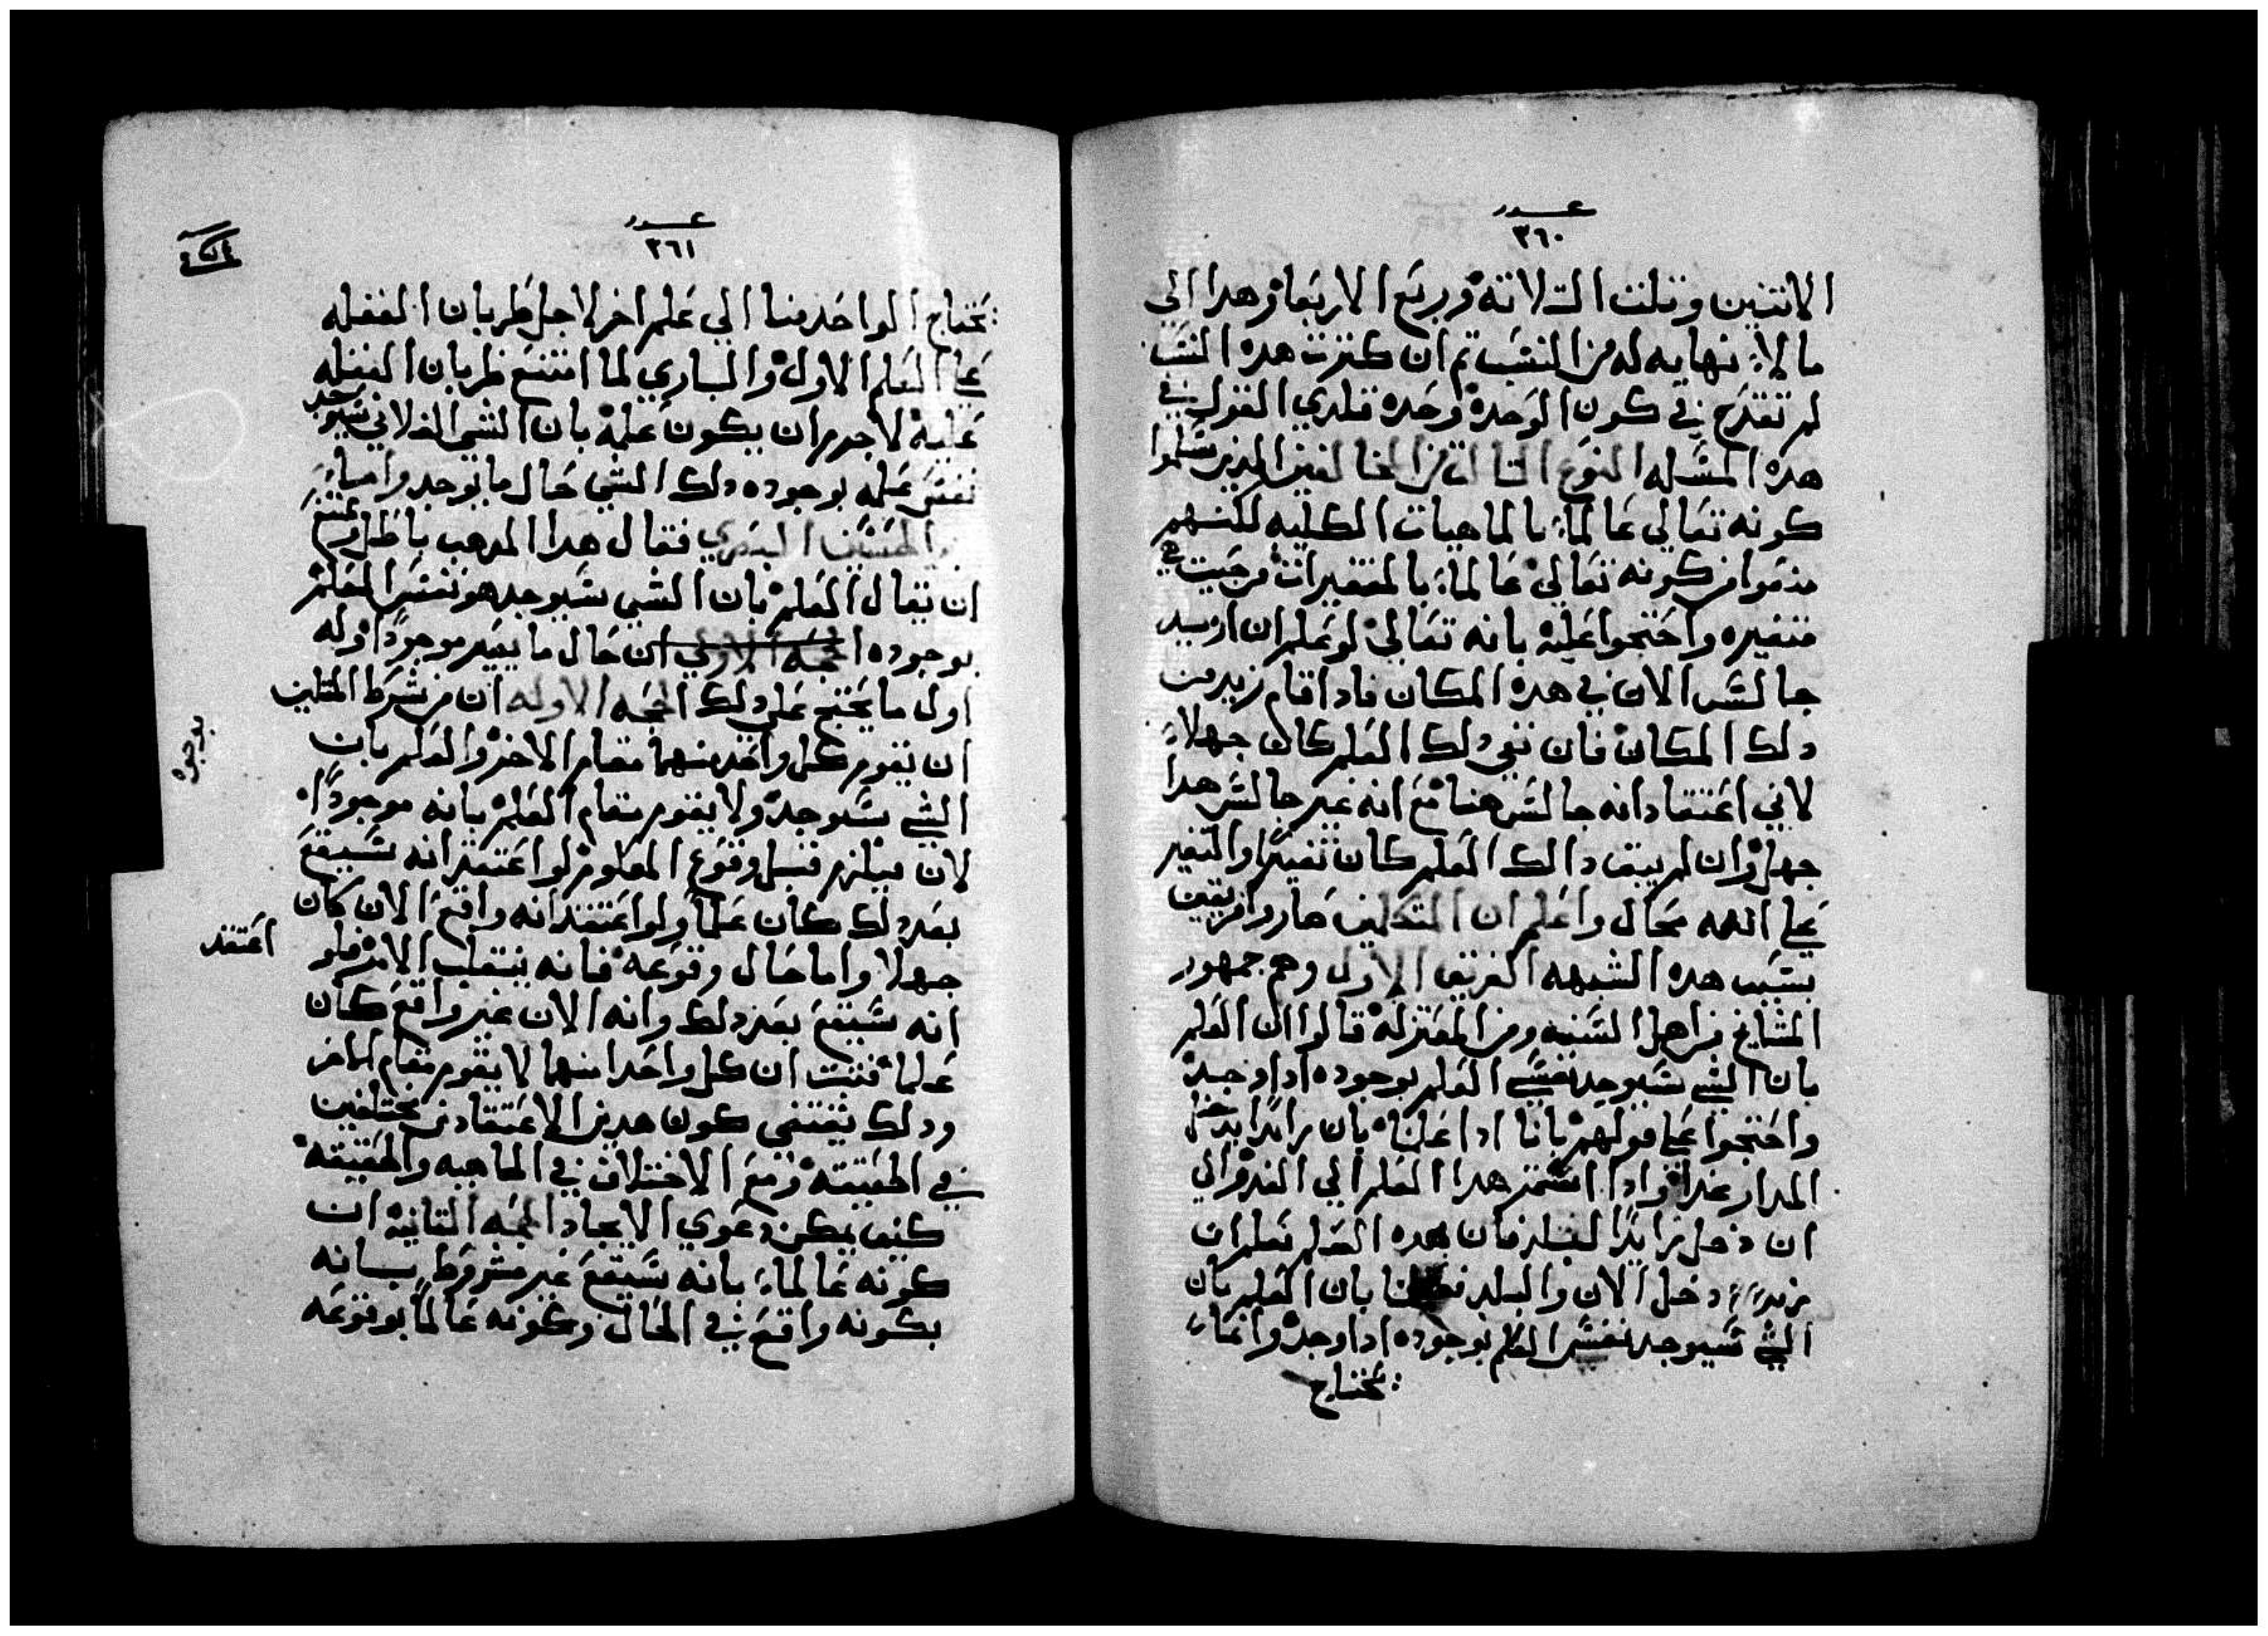 عدد
٣٦٠
الاتنين وتلت التلاته وربع الاربعه وهدا الي
ما لا نهايه له من النسب تم ان كترت هده النسب
لم تقدح في كون الوحده وحده فلدي القول في
هده المسله النوع التالت من المخالفين الدين سلموا
كونه تعالي عالما بالماهيات الكليه لكنهم
منعوا من كونه تعالي عالما بالمتغيرات من حيت هي
متغيره واحتجوا عليه بانه تعالي لو علم ان زيد
جالس الان في هده المكان فادا قام زيد من
دلك المكان فان بقي دلك العلم كان جهلا
لاني اعتقاد انه جالس هنا مع انه غير جالس هدا
جهل وان لم يبق دالك العلم كان تغيرا والتغير
علي الله محال واعلم ان المتكلمين صاروا فريقين
بسبب هده الشبهه الفريق الاول وهم جمهور
المشايخ من اهل السنه ومن المعتزله قالوا ان العلم
بان الشي سيوجد نفس العلم بوجوده ادا وجد
واحتجوا علي قولهم بانا ادا علمنا بان زايدا يدخل
الدار غدا وادا استمر هدا العلم الي الغد والي
ان دخل زايدا البلد فان بهده العلم نعلم ان
زيدا دخل الان والبلد بان العلم بان
الشي سيوجد نفس العلم بوجوده ادا وجد وانما
يحتاج
عدد
٣٦١
يحتاج الواحد منا الي علم اخر لاجل طريان الغفله
علي العلم الاول والباري لما امتنع طريان الغفله
عليه لا جرم ان يكون علمه بان الشي الفلاني سيوجد
نفس علمه بوجوده دلك الشي حال ما يوجد واما
الحسين البصري فقال هدا المدهب باطل ويمتنع
ان يقال العلم بان الشي سيوجد هو نفس العلم
بوجوده الحجه الاولي ان حال ما يصير موجودا وله
اول ما يحتج علي دلك الحجه الاوله ان من شرط المتلين
ان يقوم كل واحد منهما مقام الاخر والعلم بان
الشي سيوجد ولا يقوم مقام العلم بانه موجودا
بوجوده
لان قبل وقوع المعلوم لو اعتقد انه سيقع
بعد دلك كان علما ولو اعتقد انه واقع الان كان
جهلا واما حال وقوعه فانه ينقلب الامر فلو
اعتقد
انه سيقع بعد دلك وانه الان غير واقع كان
علما فتبت ان كل واحدا منهما لا يقوم مقام الاخر
ودلك يقتضي كون هدين الاعتقادين مختلفين
في الحقيقه ومع الاختلاف في الماهيه والحقيقه
كيف يمكن دعوي الايجاد الحجه التانيه ان
كونه عالما بانه سيقع غير مشروط بانه
بكونه واقع في الحال وكونه عالما بوقوعه